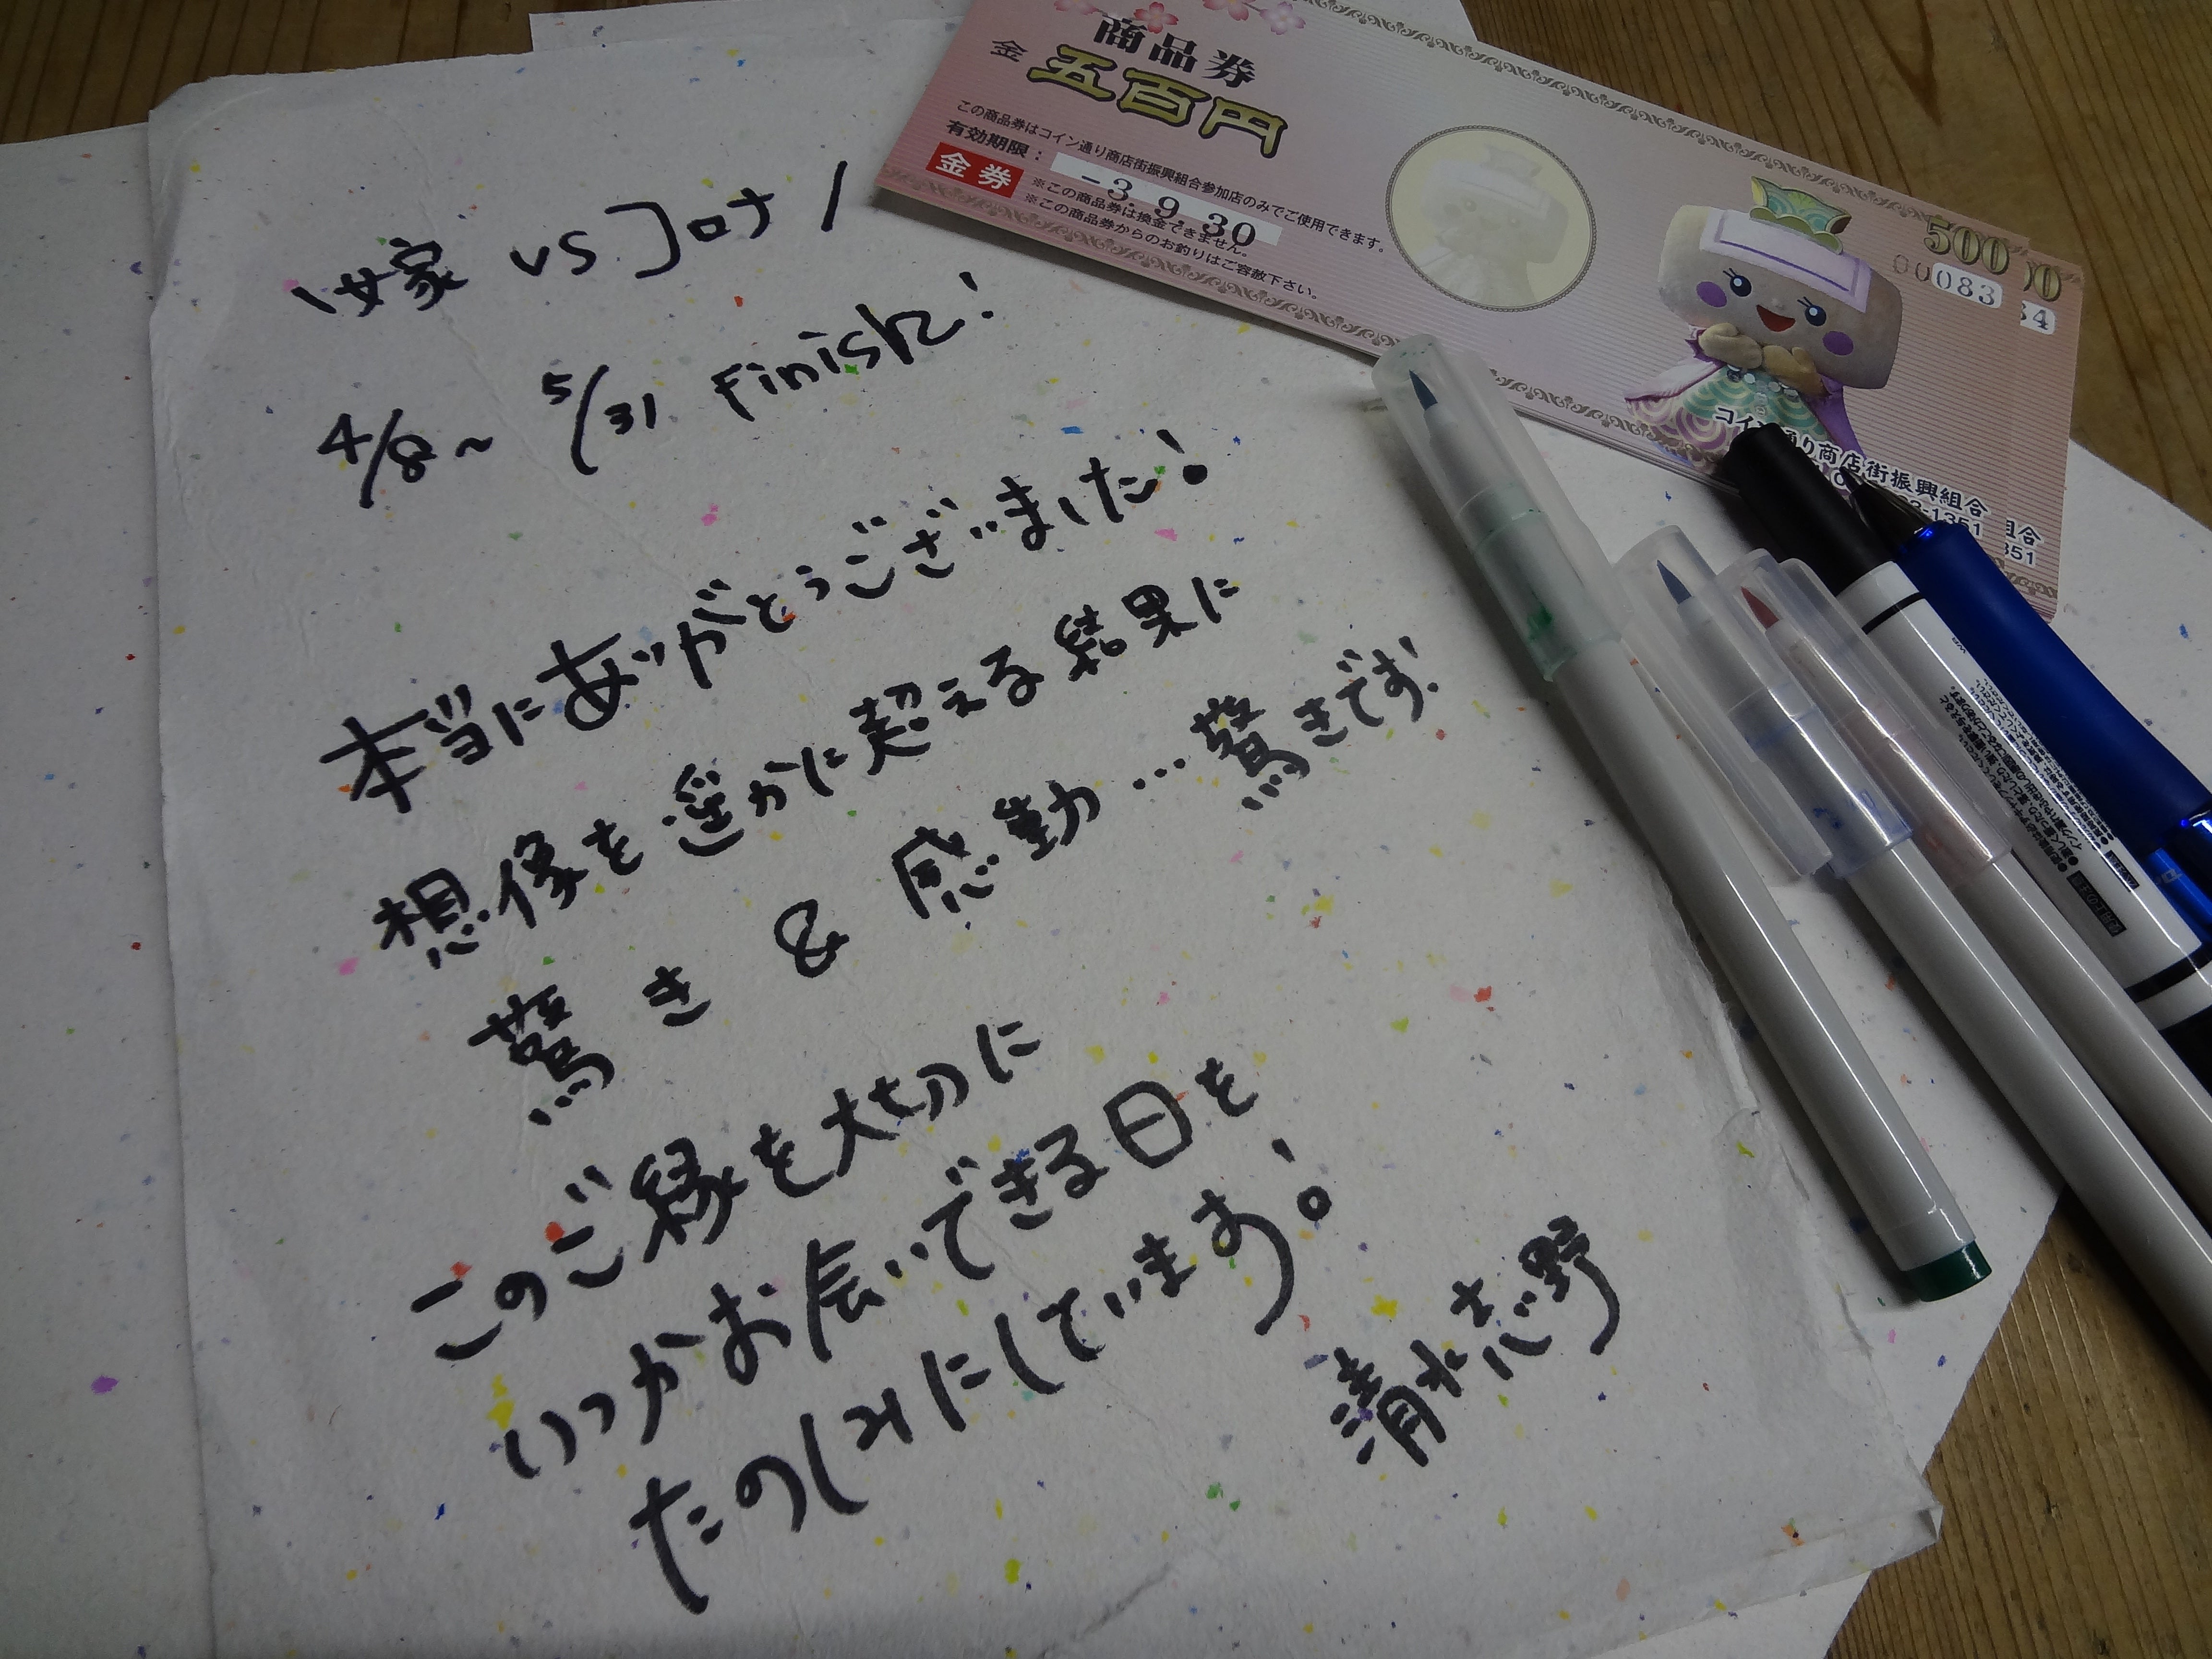 \嫁 vs コロナ/
4/8~ 5/31 Finish!
本当にありがとうございました!
想像を遥かに超える結果に
驚き & 感動…驚きです!
このご縁を大切に
いつかお会いできる日を
たのしみにしています!
清水志野
商品券
金 五百円
この商品券はコイン通り商店街振興組合参加店のみでご使用できます。
有効期限:
-3.9.30
金券
※この商品券は換金できません。
※この商品券からのお釣りはご容赦下さい。
500
00083
34
コイン通り商店街振興組合
-1351
組合
351